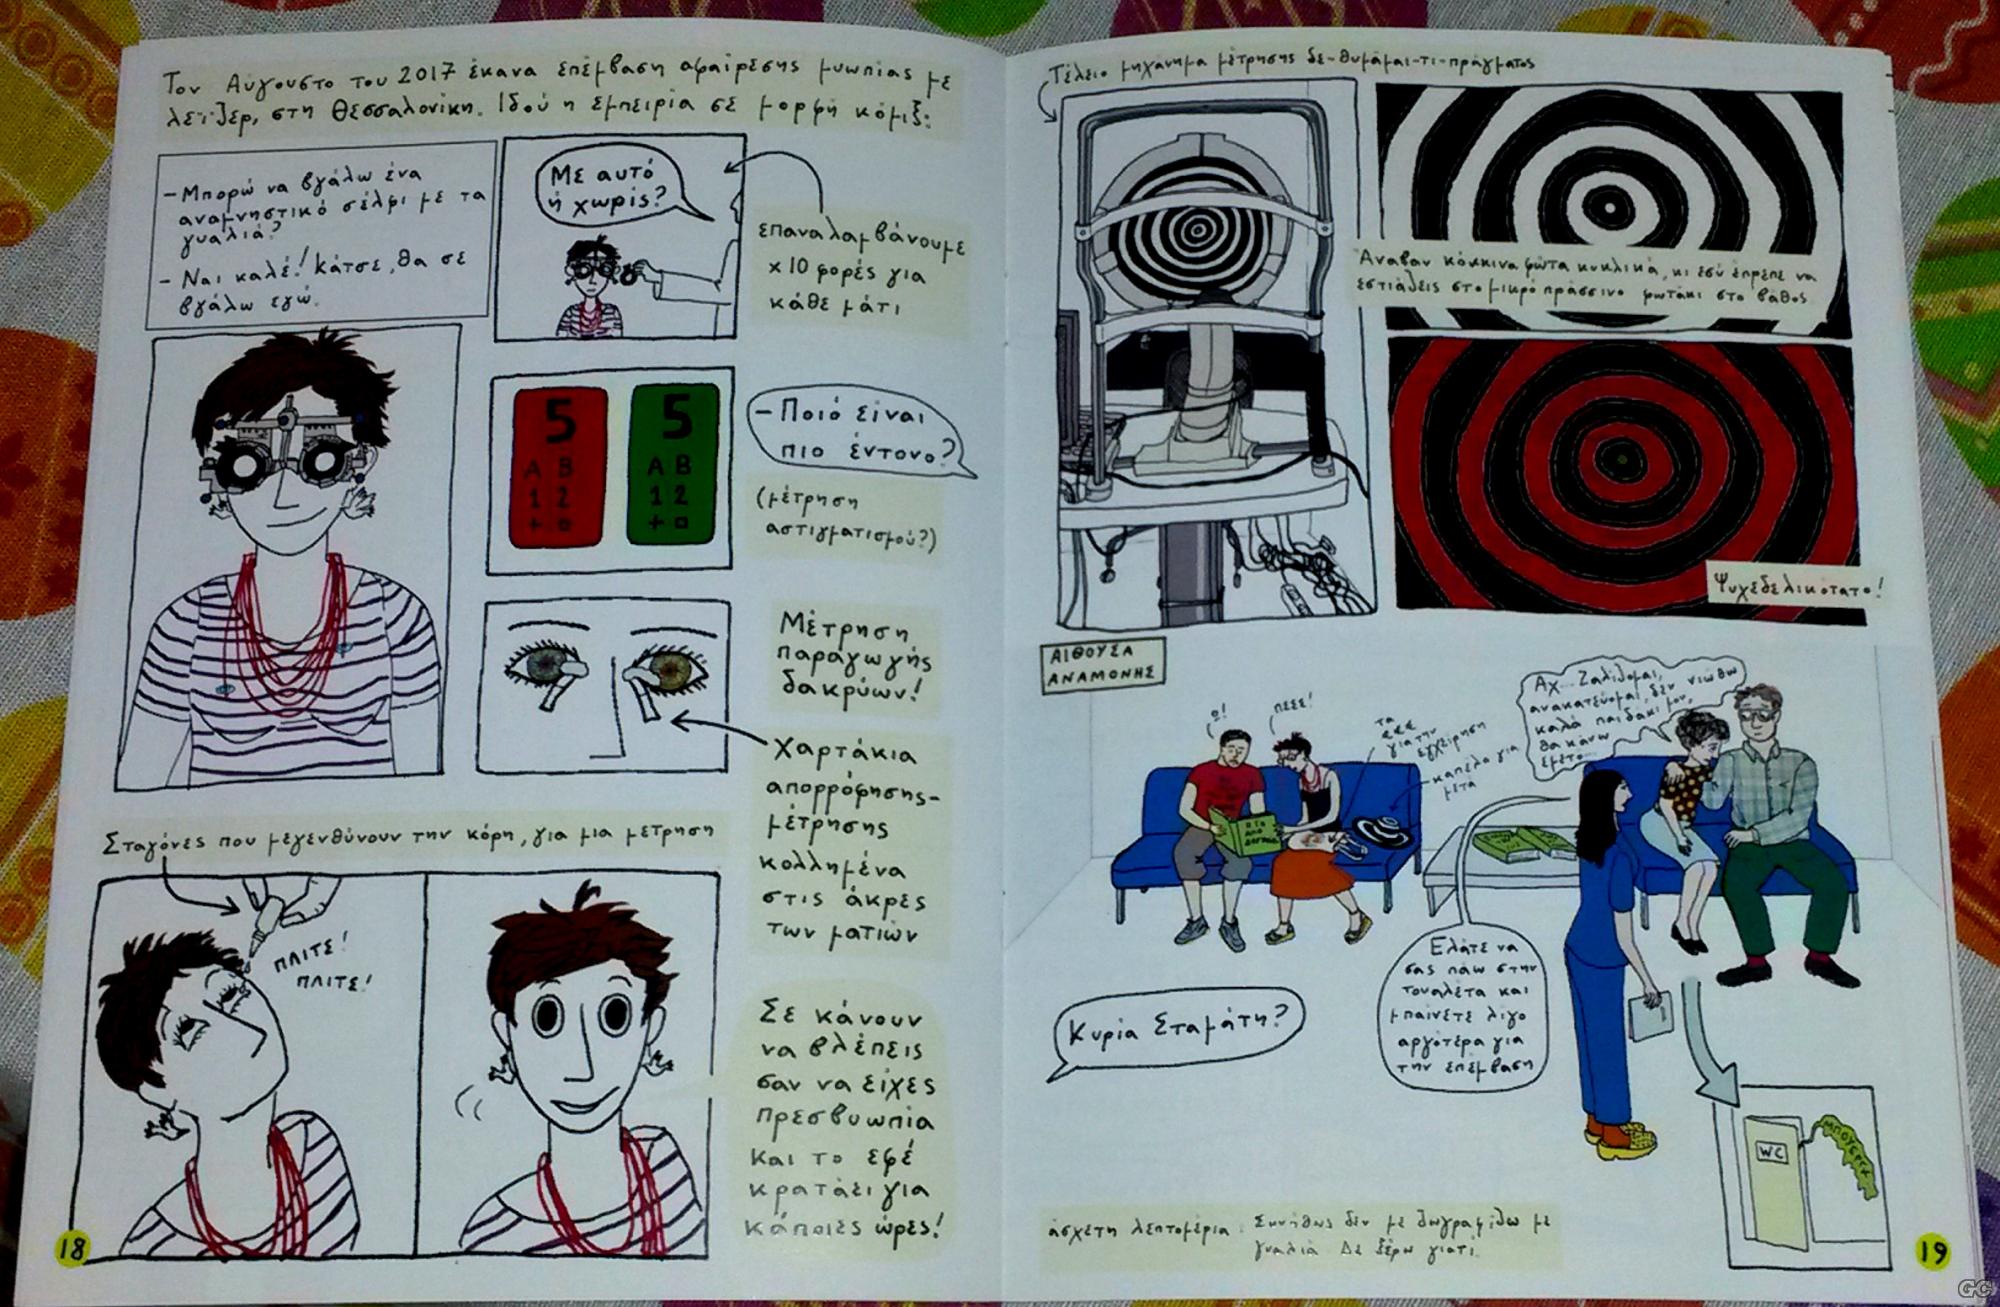 Τον Αύγουστο του 2017 έκανα επέμβαση αφαίρεσης μυωπίας με
λέιζερ, στη Θεσσαλονίκη. Ιδού η εμπειρία σε μορφή κόμιξ:
- Μπορώ να βγάλω ένα
αναμνηστικό σέλφι με τα
γυαλιά?
- Ναι καλέ! Κάτσε, θα σε
βγάλω εγώ.
Με αυτό
ή χωρίς?
επαναλαμβάνουμε
x10 φορές για
κάθε μάτι
5
A B
1 2
5
A B
1 2
- Ποιό είναι
πιο έντονο?
(μέτρηση
αστιγματισμού?)
Μέτρηση
παραγωγής
δακρύων!
Χαρτάκια
απορρόφησης-
μέτρησης
κολλημένα
στις άκρες
των ματιών
Σταγόνες που μεγενθύνουν την κόρη, για μια μέτρηση
ΠΛΙΤΣ!
ΠΛΙΤΣ!
Σε κάνουν
να βλέπεις
σαν να είχες
πρεσβυωπία
και το εφέ
κρατάει για
κάποιες ώρες!
18
Τέλειο μηχάνημα μέτρησης δε-θυμάμαι-τι-πράγματος
Άναβαν κόκκινα φώτα κυκλικά, κι εσύ έπρεπε να
εστιάσεις στο μικρό πράσινο φωτάκι στο βάθος
Ψυχεδελικότατο!
ΑΙΘΟΥΣΑ
ΑΝΑΜΟΝΗΣ
Ω!
ΠΣΣΣ!
τα
για την
εγχείρηση
καπέλο για
μετά
Αχ... Ζαλίζομαι,
ανακατεύομαι, δεν νιώθω
καλά παιδάκι μου,
θα κάνω
εμετο...
Ελάτε να
σας πάω στην
τουαλέτα και
μπαίνετε λίγο
αργότερα για
την επέμβαση
Κυρία Σταμάτη?
WC
ΜΠΟΥΕΡΓΚ
άσχετη λεπτομέρεια: Συνήθως δεν με ζωγραφίζω με
γυαλιά. Δε ξέρω γιατί.
19
GC